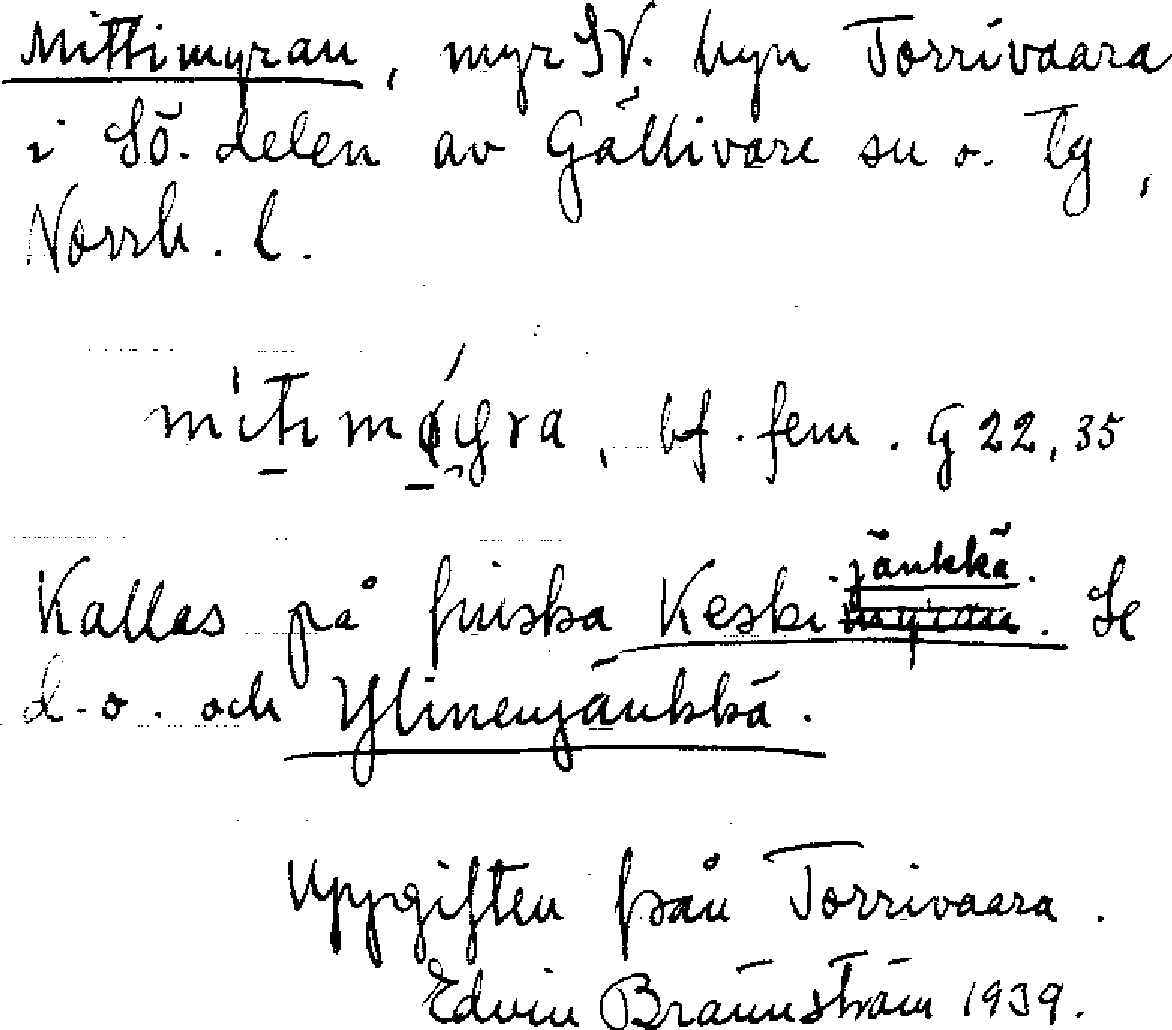 Mittimyran, myr SV. byn Torrivaara
i Sö. delen av Gällivare sn o. tg,
Norrb. l.
bf. fem. G 22, 35
Kallas på finska Keskijänkkä. Se
d. o. och Ylinenjänkkä.
Uppgiften från Torrivaara.
Edvin Brännström 1939.